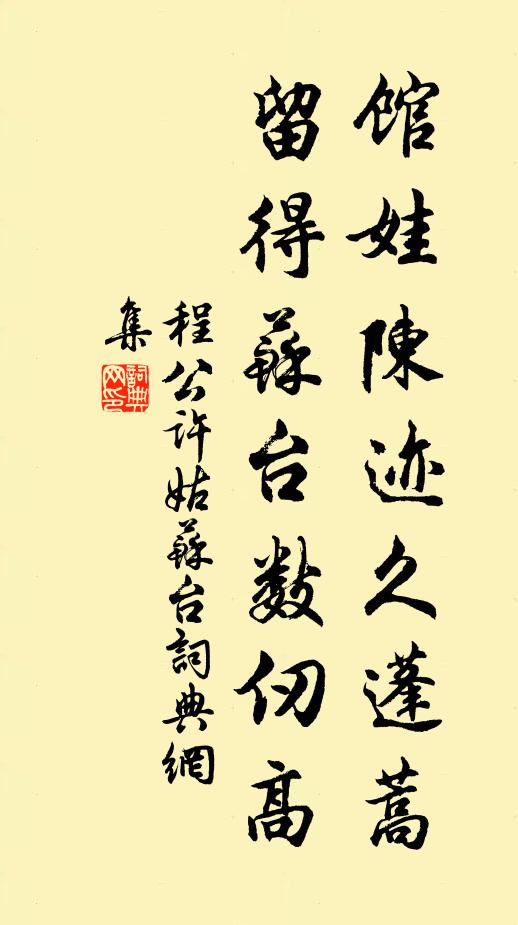 馆娃陳迹久蓬蒿
留得蘇台数仞高
程公许姑蘇台詞典網
集
詞典网印